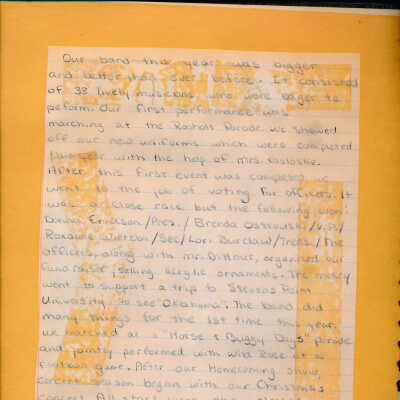 Our band this year was bigger
and better than ever before. It consisted
of 38 lively musicians who were eager to
peform. Our first performance was
marching at the Rosholt Parade. We showed
off our new uniforms which were completed
this year with the help of Mrs. Kosloske.
After this first event was completed we
went to the job of voting for officers. It
was a close race but the following won:
Donna Erickson/Pres./Brenda Ostrowski/V.P./
Roxanne Wierzba/Sec/Lori Burclaw/Treas./The
officers, along with Mr. Dittmer, organized our
fundraiser; selling acrylic ornaments. The money
went to support a trip to Stevens Point
University to see "Oklahoma". The band did
many things for the 1st time this year.
We marched at a "Horse & Buggy Days" parade
and jointly performed with Wild Rose at a
football game. After our Homecoming show,
concert season began with our Christmas
concert. All